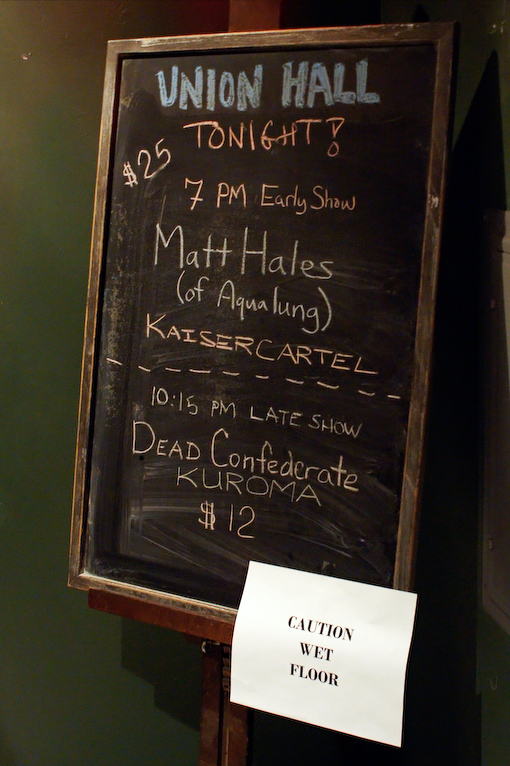 UNION HALL
TONIGHT!
$25
7 PM Early Show
Matt Hales
(of Aqualung)
KAISERCARTEL
10:15 PM LATE SHOW
DEAD Confederate
KUROMA
$12
CAUTION
WET
FLOOR